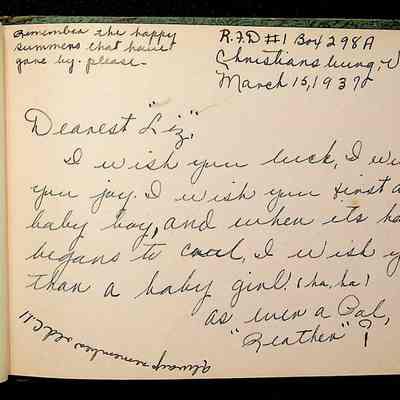 Remember the happy
summers that have
gone by. please-
R.F.D #1 Box 298A
Christiansburg, V
March 15, 1937
Dearest "Liz",
I wish you luck, I wi
you joy. I wish you first a
baby boy, and when its ha
begans to curl, I wish y
than a baby girl! (ha, ha)
as ever a Pal,
"Heathen" ?
always remember old C.